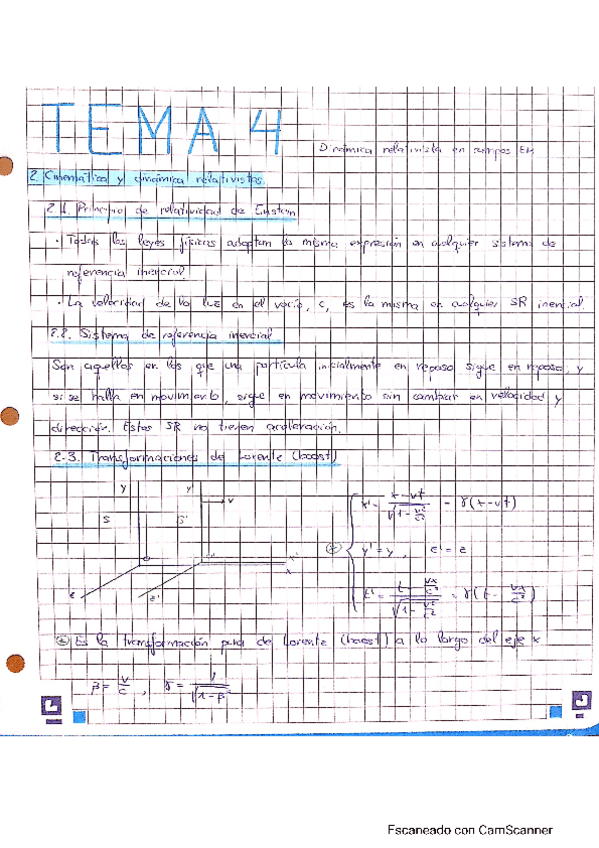 TEMA 4
Dinámica relativista en campos EM
2. Cinemática y dinámica relativistas
2.1. Principio de relatividad de Einstein
· Todas las leyes físicas adoptan la misma expresión en cualquier sistema de
referencia inercial.
· La velocidad de la luz en el vacío, c, es la misma en cualquier SR inercial.
2.2. Sistema de referencia inercial
Son aquellos en los que una partícula inicialmente en reposo sigue en reposo, y
si se halla en movimiento, sigue en movimiento sin cambiar en velocidad y
dirección. Estos SR no tienen aceleración.
2.3. Transformaciones de Lorentz (boost)
y y' v
S S'
x' = (x-vt)/√(1-v²/c²) = γ(x-vt)
y' = y, z' = z
t' = (t - vx/c²)/√(1-v²/c²) = γ(t - vx/c²)
x' x
z z'
Es la transformación pura de Lorentz (boost) a lo largo del eje x
β = v/c, γ = 1/√(1-β
Escaneado con CamScanner